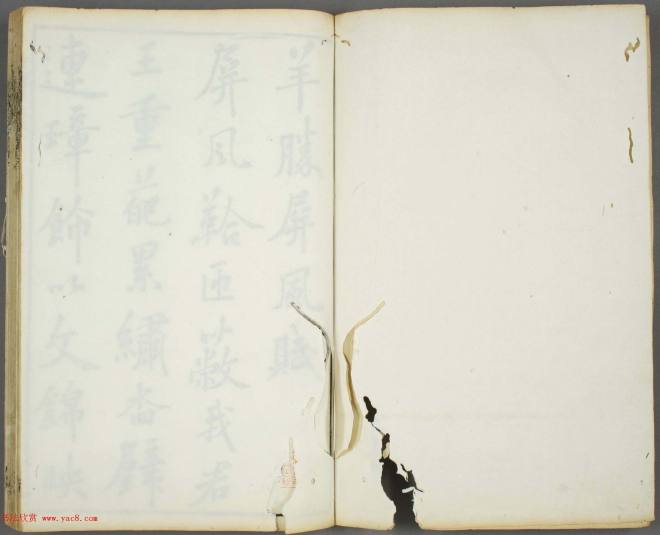 羊勝屏風賦
屏風鞈匝蔽我君
王重葩累繡沓璧
連璋飾以文錦映
书法欣赏 www.yac8.com